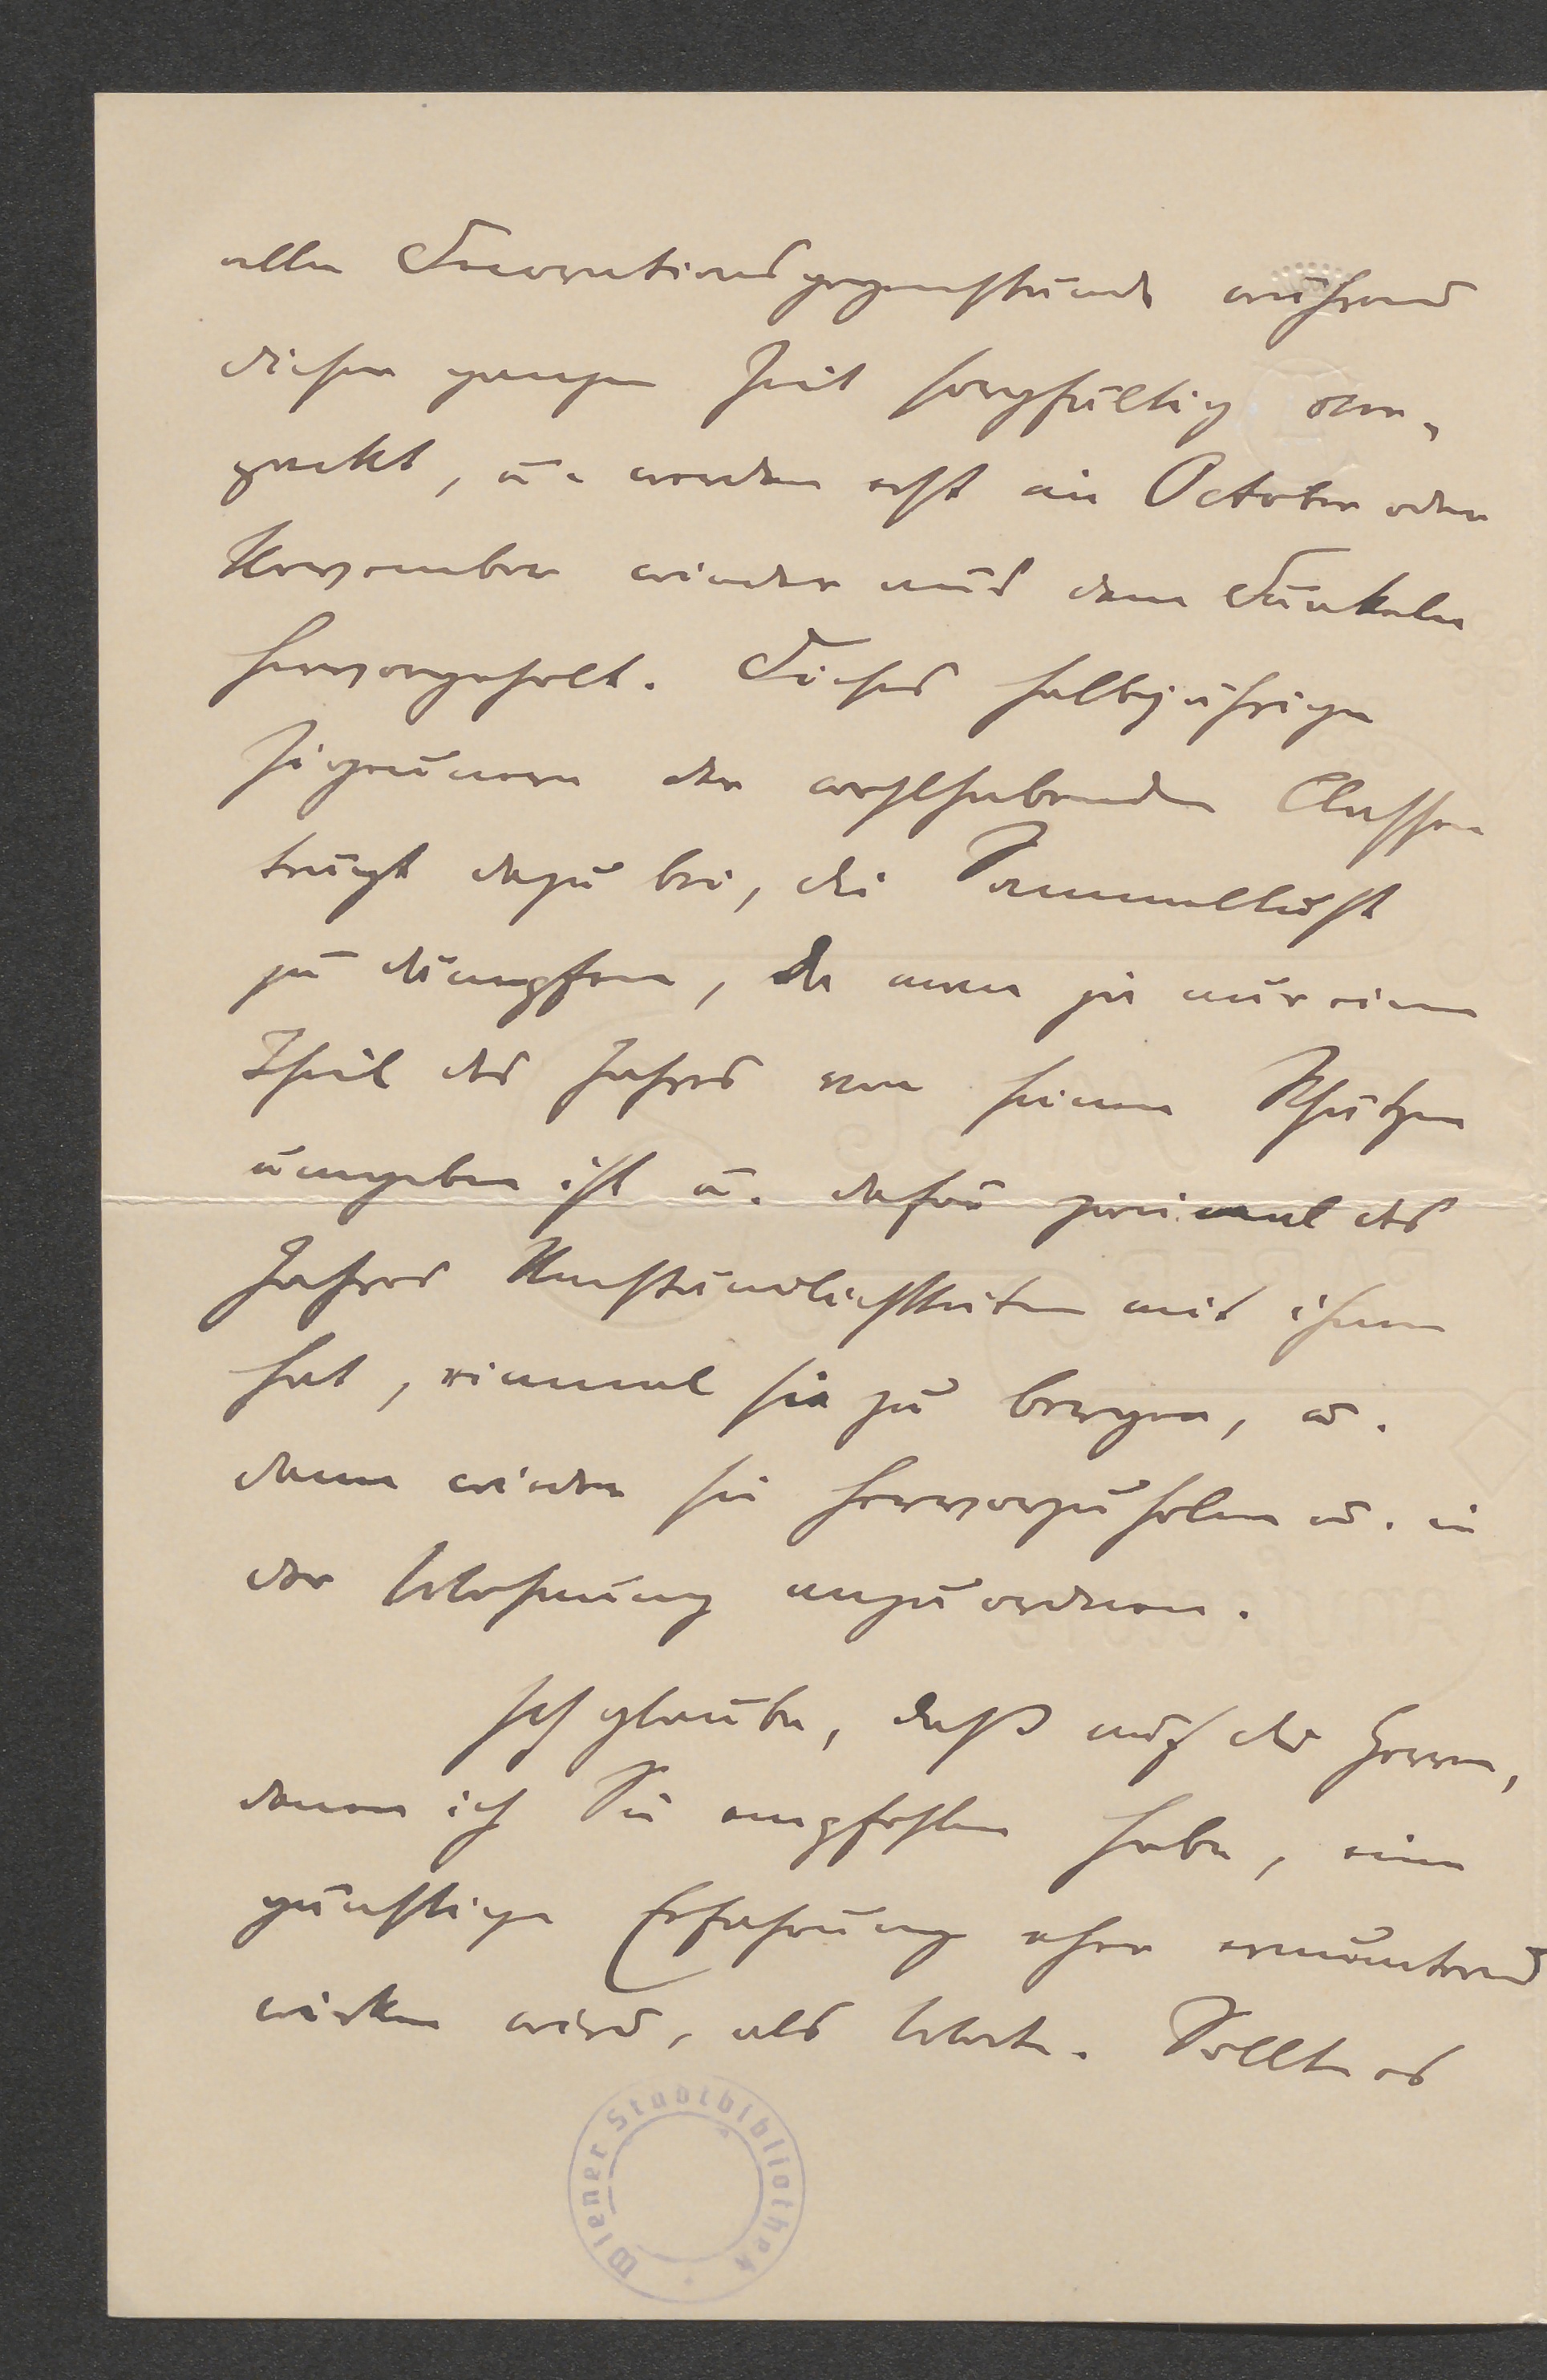 alle Decorationsgegenstände während
dieser ganzen Zeit sorgfältig ver-
packt, u. werden erst im October oder
November wieder aus dem Dunkeln
hervorgeholt. Dieses halbjährige
Zigeunern der wohlhabenden Classen
trägt dazu bei, die Sammellust
zu dämpfen, da man ja nur einen
Theil des Jahres von seinen Schätzen
umgeben ist u. dafür zweimal des
Jahres Umständlichkeiten mit ihnen
hat, einmal sie zu bergen, u.
dann wieder sie hervorzuholen u. in
der Wohnung anzuordnen.
Ich glaube, daß auf die Herren,
denen ich Sie empfohlen habe, eine
günstige Erfahrung eher ermunternd
wirken wird, als Worte. Sollte es
Wiener Stadtbibliothek